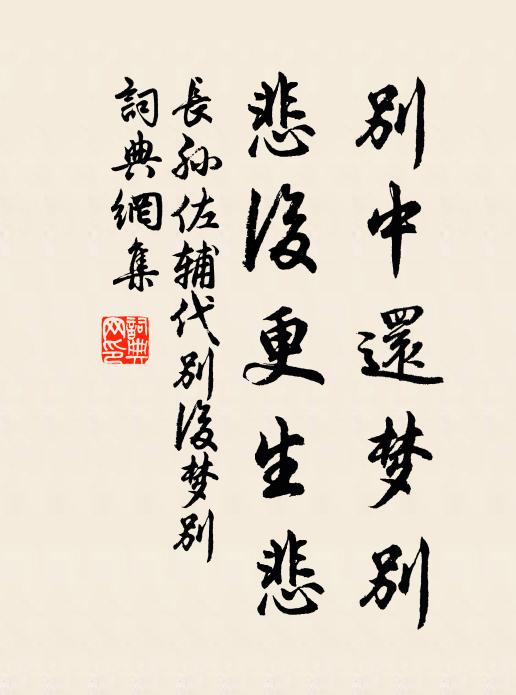 別中還梦別
悲後更生悲
長孙佐輔代別後梦別
詞典網集
詞典网印